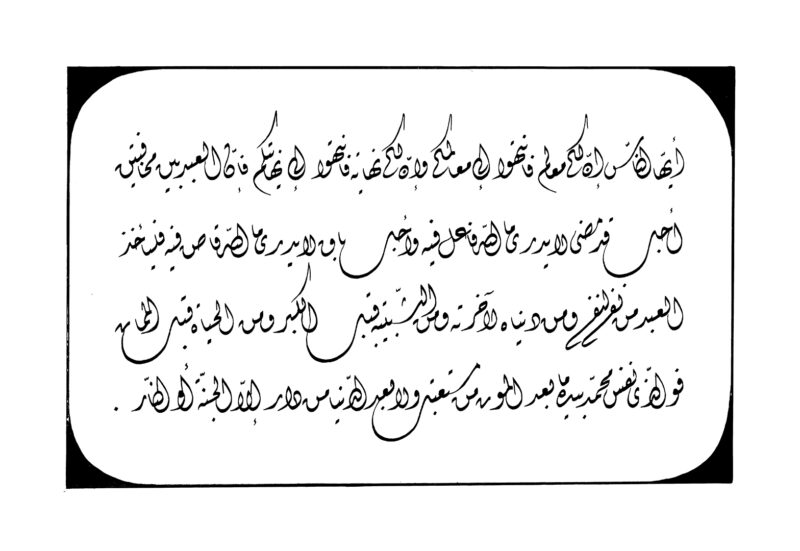 أيّها الناّس إنّ لكم معالم فانتهوا إلى معالمكم وإنّ لكم نهاية فانتهوا إلى نهايتكم فإنّ العبد بين مخافتين
أجل قد مضى لا يدرى ما الله فاعل فيه وأجل باق لا يدرى ما الله قاض فيه فليأخذ
العبد من نفسه لنفسه ومن دنياه لآخرته ومن الشّبيبة قبل الكبر ومن الحياة قبل الممات
فو الذى نفس محمّد بيده ما بعد الموت من مستعتب ولا بعد الدّنيا من دار إلاّ الجنّة أو النّار .